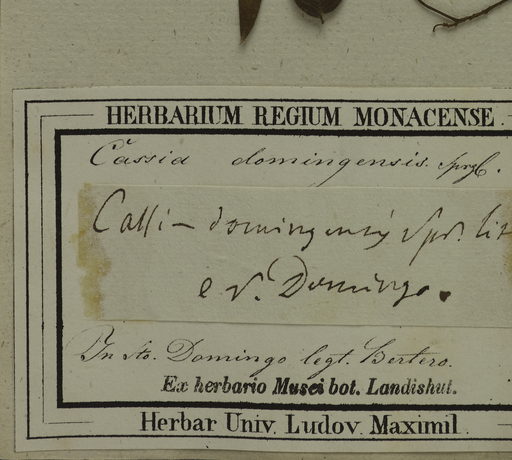 HERBARIUM REGIUM MONACENSE.
Cassia domingensis. Sprgl.
Cassia domingensis Spr. lit
e S. Domingo.
In Sto. Domingo legt. Bertero.
Ex herbario Musei bot. Landishut.
Herbar Univ. Ludov. Maximil.